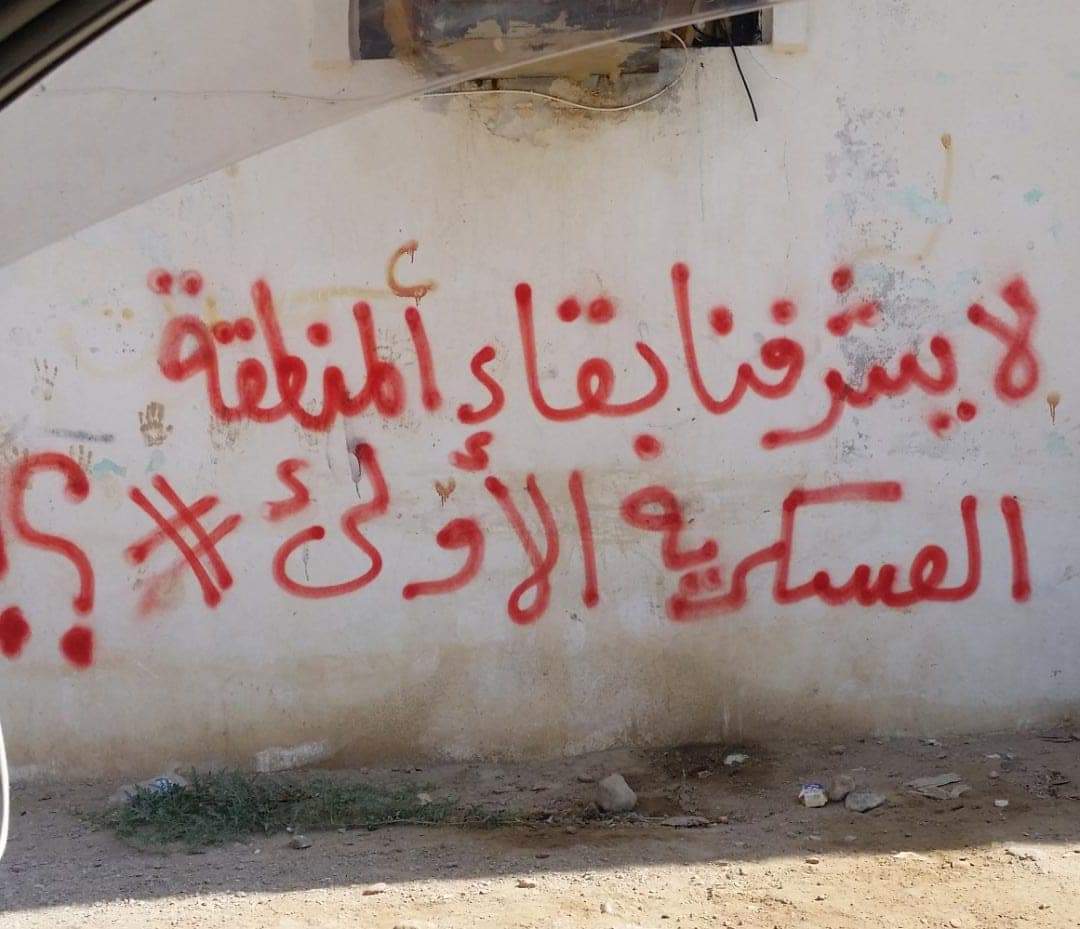 لا يشرفنا بقاء ألمنطقة
العسكرية الأولىء #؟